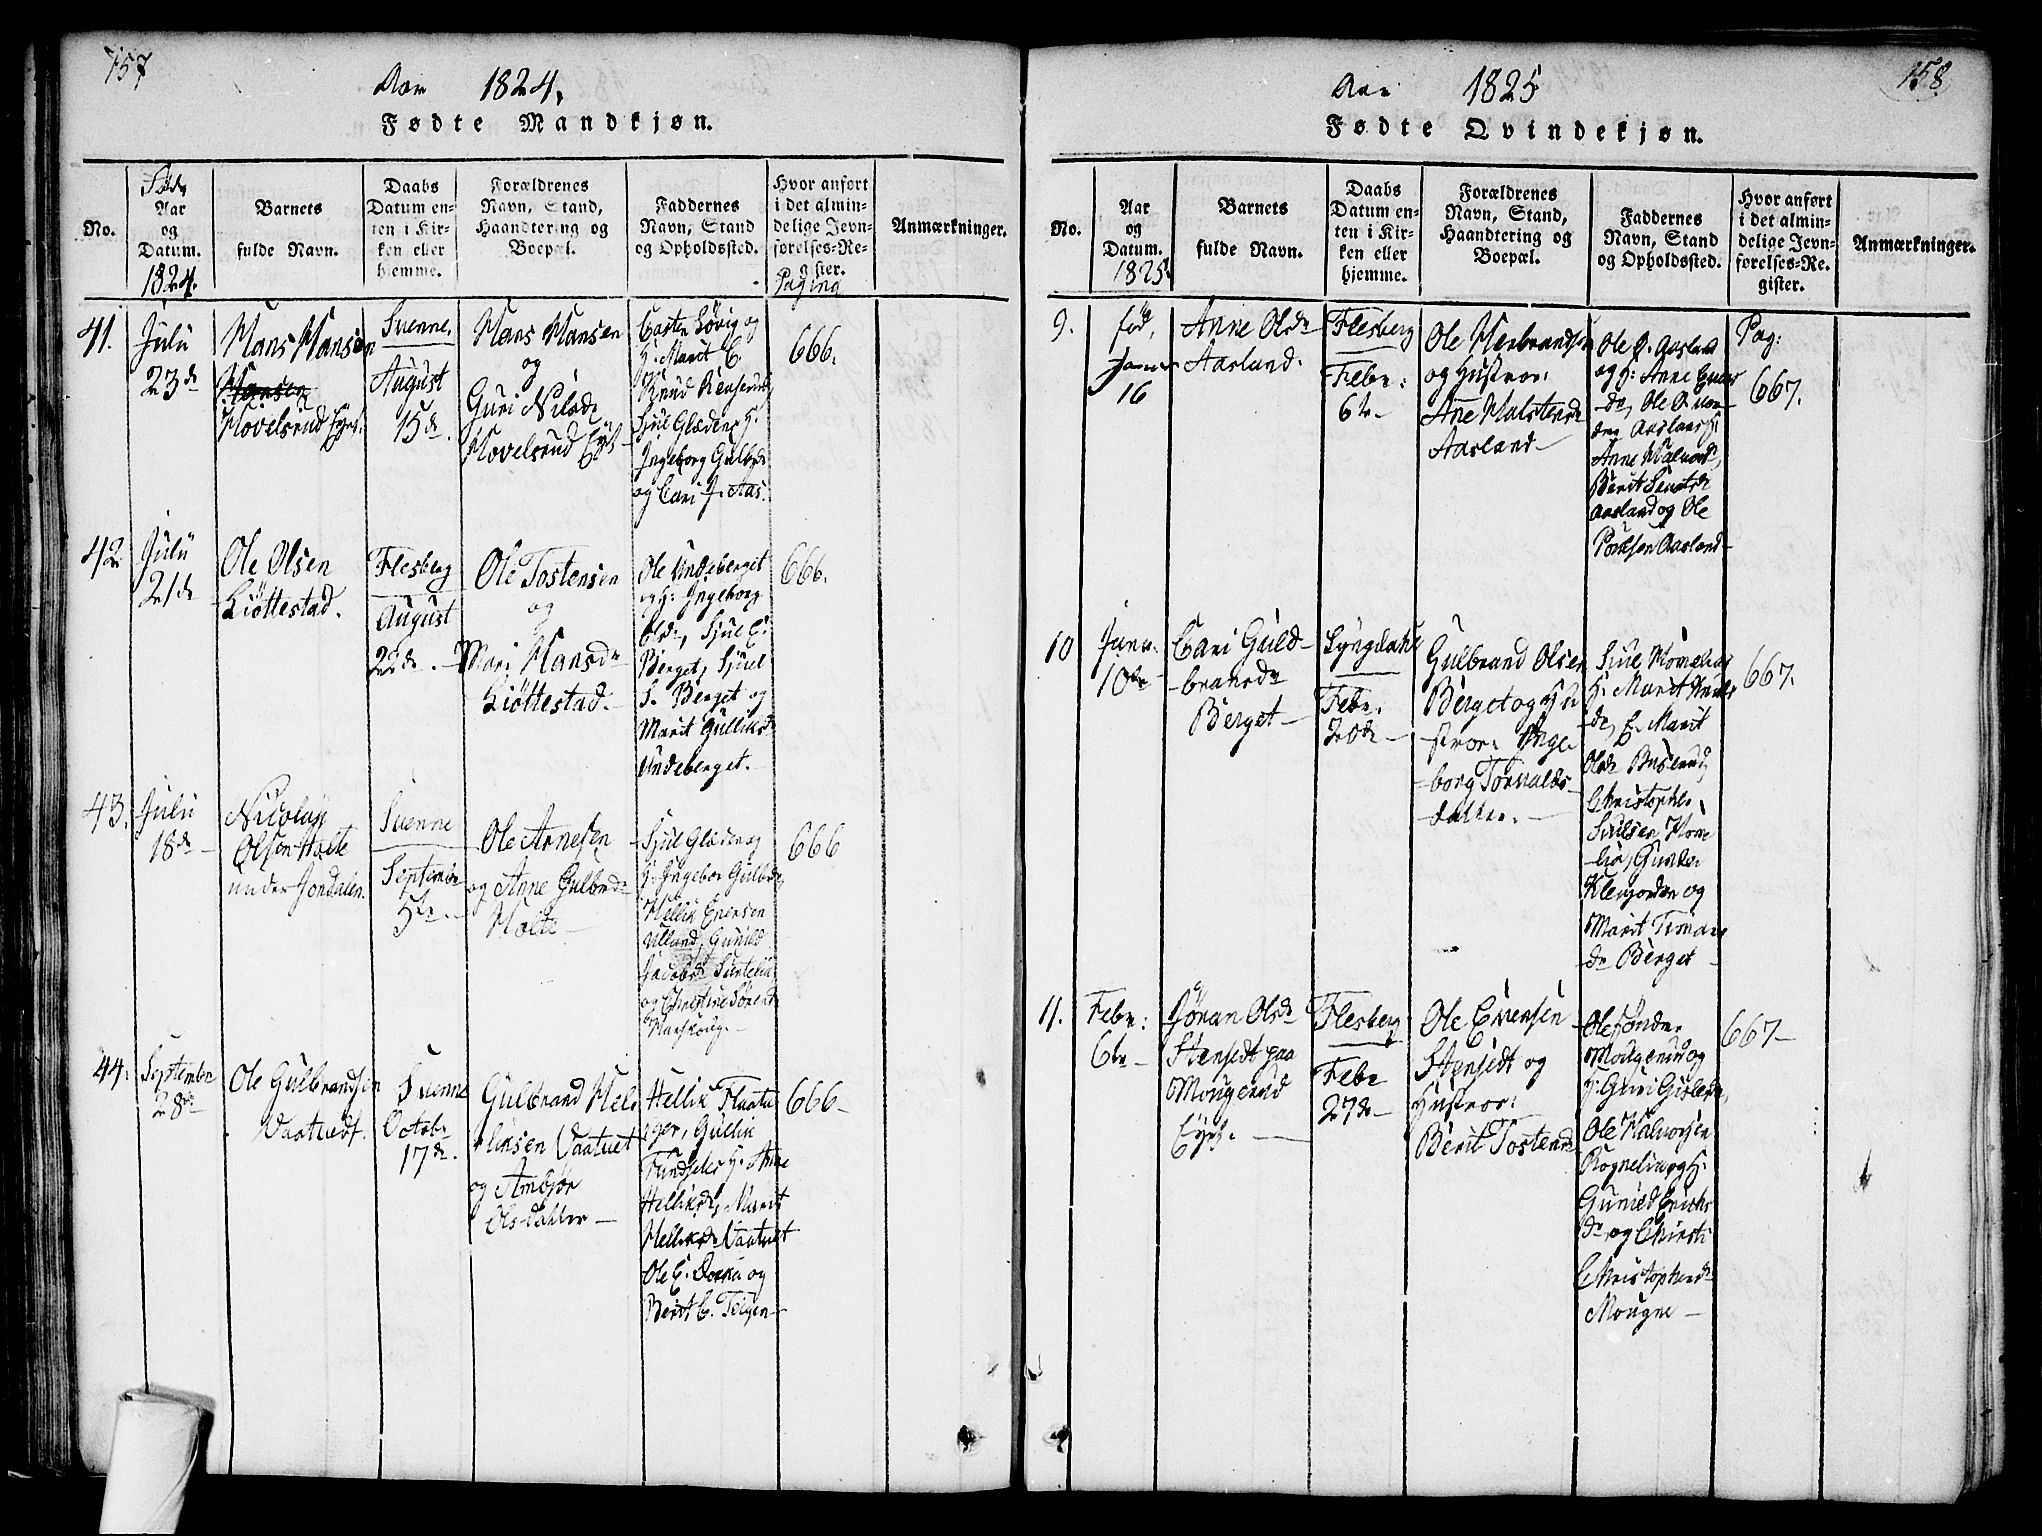 157
Aar 1824.
Fødte Mandkjøn.
No.
Føds
Aar
og
Datum.
1824.
Barnets
fulde Navn.
Daabs
Datum en-
ten i Kir-
ken eller
hjemme.
Forældrenes
Navn, Stand,
Haandtering og
Boepæl.
Faddernes
Navn, Stand
og Opholdssted.
Hvor anført
i det almin-
delige Jevn-
førelses-Re-
gister.
Paging
Anmærkninger.
41.
Julii
23de
Hans Hansen
Hansen
Hovelsrud
Svenne.
August
15de.
Hans Hansen
og
Guri Nilsdr
Hovelsrud
og
H. Marit C.
Knud
Sjul Glæden, H.
Ingeborg Gulbrdr
og Cari J. Aas.
666.
42.
Julii
21de
Ole Olsen
Liøttestad.
Flesberg
August
22de.
Ole Tostensen
og
Mari Hansdr
Liøttestad.
Ole Undeberget
og H: Ingeborg
Olsdr, Sjul E.
Berget, Sjul
S. Berget og
Marit Gulliksdr
Undeberget.
666.
43.
Julii
18de
Nicolay
Olsen Holte
under Jondalen.
Svenne
September
5te.
Ole Arnesen
og Anne Gulbrdr
Holte
Sjul Glæden og
H. Ingebor Gulbrdr,
Hellik Evensen
Ulland, Gunild
Jacobsdr
og Christine Sørensdr
666
44.
September
28de
Ole Gulbrandsen
Vaatvedt.
Svenne
Octobr
17de.
Gulbrand Hel-
liksen Vaatvet
og Ambjør
Olsdatter
Hellik Flaata
ger, Gullik
H. Anne
Helliksdr, Marit
Helliksdr Vaatvet
Ole E. og
Berit C.
666
158.
Aar 1825
Fødte Qvindekjøn.
No.
Aar
og
Datum.
1825
Barnets
fulde Navn.
Daabs
Datum en-
ten i Kir-
ken eller
hjemme.
Forældrenes
Navn, Stand,
Haandtering og
Boepæl.
Faddernes
Navn, Stand
og Opholdssted.
Hvor anført
i det almin-
delige Jevn-
førelses-Re-
gister.
Anmærkninger.
9.
fød,
Januar
16
Anne Olsdr
Aasland.
Flesberg
Febr:
6te
Ole Herbrandsen
og Hustroe:
Ane Halstensdr
Aasland
Ole O. Aasland
og H: Anne Evens
dr, Ole
Aasland, H:
Anne
Berit Knutsdr
Aasland og Ole
Aasland
Pag:
667.
10
Janu.
10de
Cari Guld-
bransdr
Berget
Lyngdahl
Febr.
20de
Gulbrand Olsen
Berget og Hu
stroe: Inge
borg Torvalds
datter.
Sjul
H: Marit
dr, E. Marit
Olsdr
Christopher
og
Marit
dr Berget
667.
11.
Febr:
6te
Jøran Olsdr
Stensedt paa
Mougerud
Eyet.
Flesberg
Febr
27de
Ole Evensen
Stensedt og
Hustroe:
Berit Tostensdr
Ole
Mougerud og
H: Guri Gislesdr,
Ole Halvorsen
og H.
Gunild Erichs
dr og Christi
Christophersdr
Mougne
667